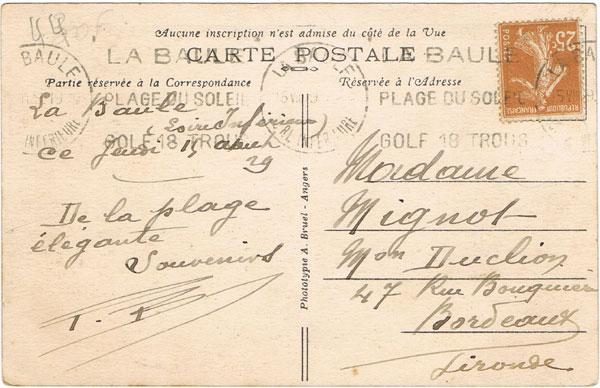 Aucune inscription n'est admise du côté de la Vue
CARTE POSTALE
Partie réservée à la Correspondance
Réservée à l'Adresse
LA BAULE
PLAGE DU SOLEIL
GOLF 18 TROUS
LA BAULE
PLAGE DU SOLEIL
GOLF 18 TROUS
25c
POSTES
REPUBLIQUE FRANÇAISE
La Baule
(Loire Inférieure)
ce Jeudi 15 août
29
De la plage
élégante
Souvenirs
Phototypie A. Bruel - Angers
Madame
Mignot
Mon Duclion
47 Rue
Bordeaux
Gironde